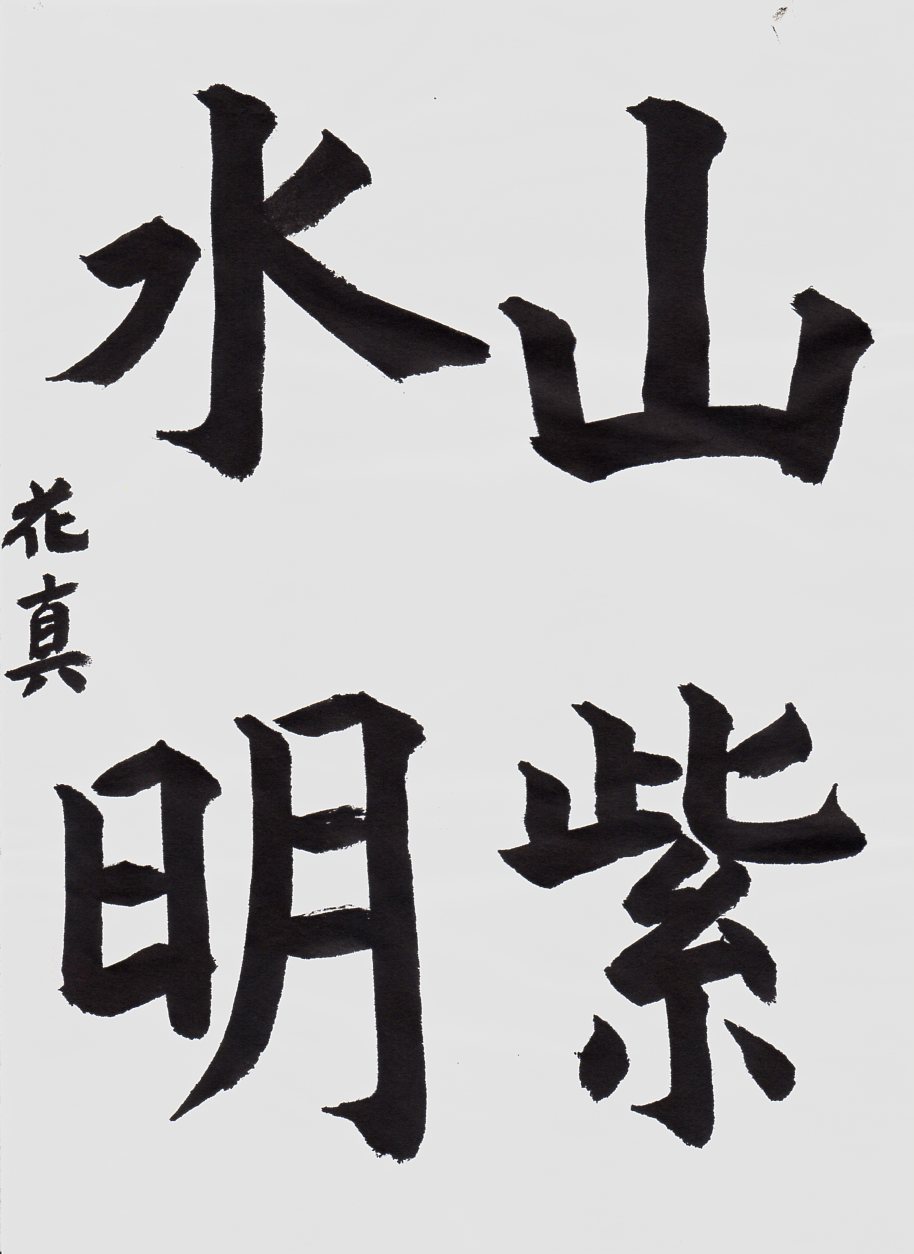 山紫
水明
花真